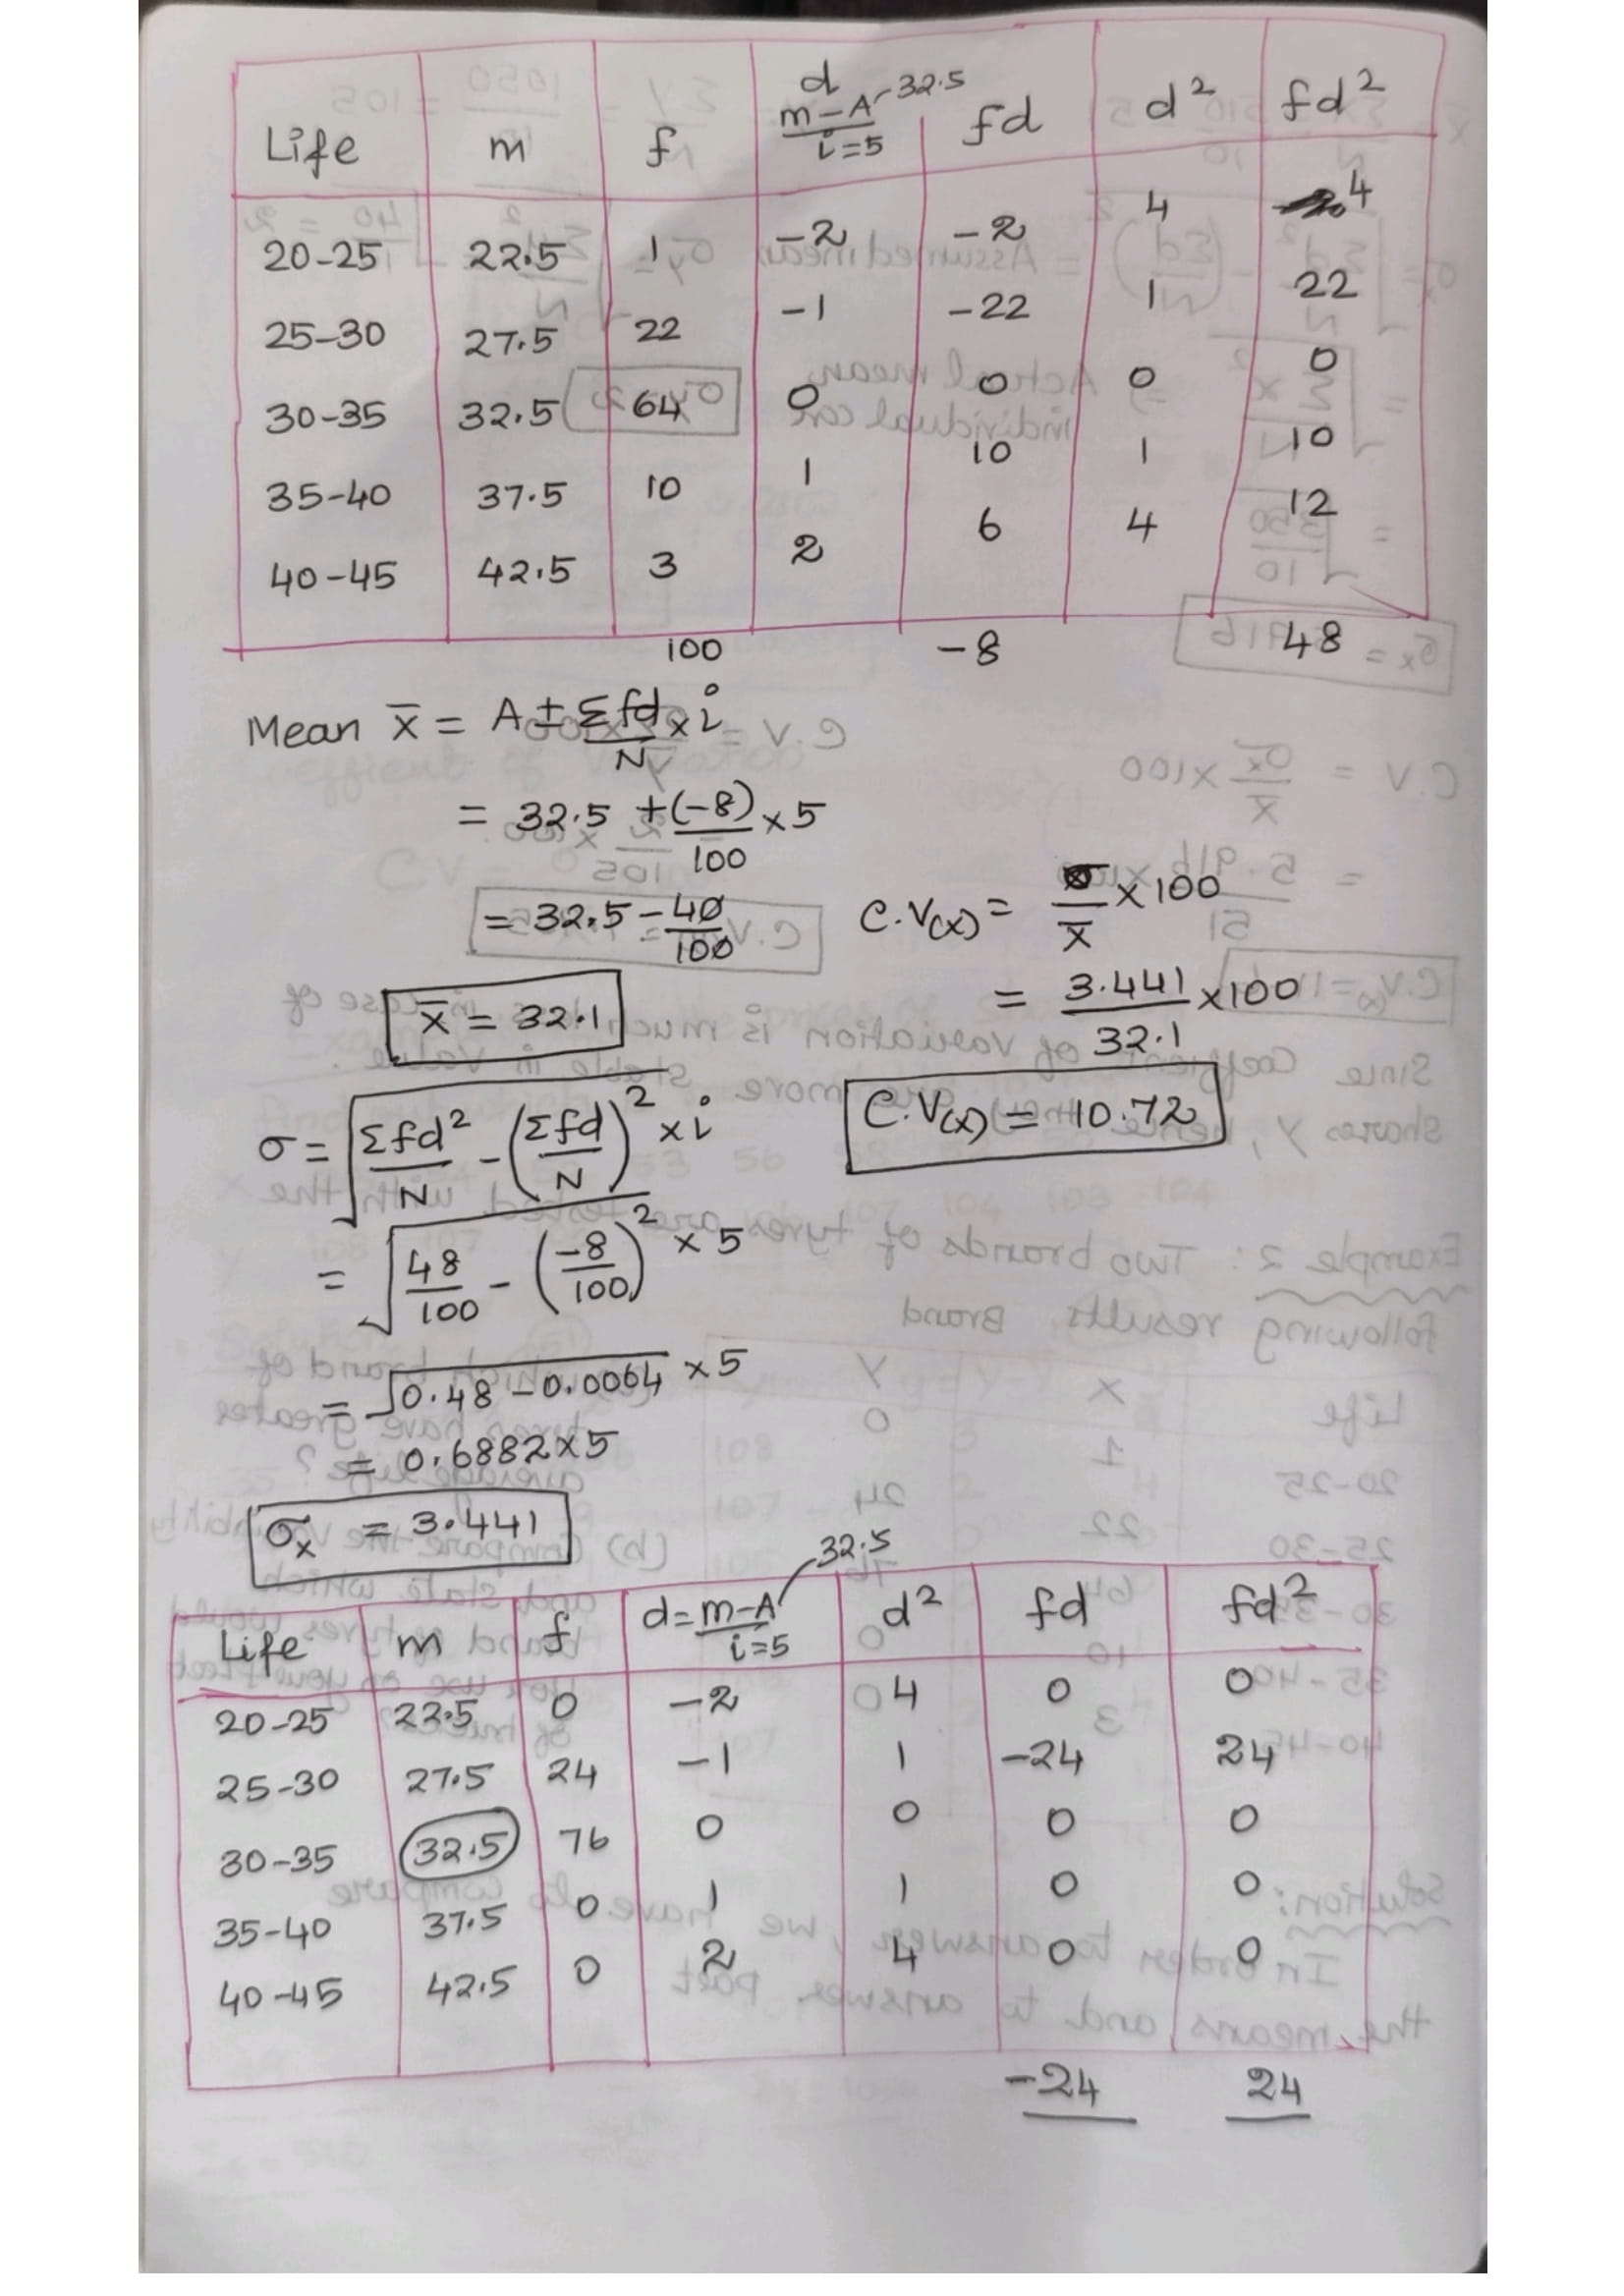 Life m f d m-A/i=5 32.5 fd d² fd²
20-25 22.5 1 -2 -2 4 4
25-30 27.5 22 -1 -22 1 22
30-35 32.5 64 0 0 0 0
35-40 37.5 10 1 10 1 10
40-45 42.5 3 2 6 4 12
100 -8 48
Mean x̄ = A ± Σfd/N × i
= 32.5 + (-8)/100 × 5
= 32.5 - 40/100
x̄ = 32.1
C.V(x) = σ/x̄ × 100
= 3.441/32.1 × 100
C.V(x) = 10.72
σ = √(Σfd²/N - (Σfd/N)²) × i
= √(48/100 - (-8/100)²) × 5
= √(0.48 - 0.0064) × 5
= 0.6882 × 5
σx = 3.441
Life m f d = m-A/i=5 32.5 d² fd fd²
20-25 22.5 0 -2 4 0 0
25-30 27.5 24 -1 1 -24 24
30-35 32.5 76 0 0 0 0
35-40 37.5 0 1 1 0 0
40-45 42.5 0 2 4 0 0
-24 24